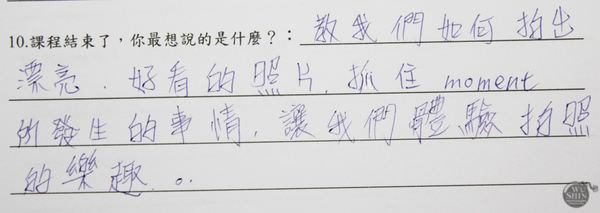 10.課程結束了，你最想說的是什麼？：教我們如何拍出
漂亮、好看的照片，抓住 moment
所發生的事情，讓我們體驗拍照
的樂趣。
WU SHIN